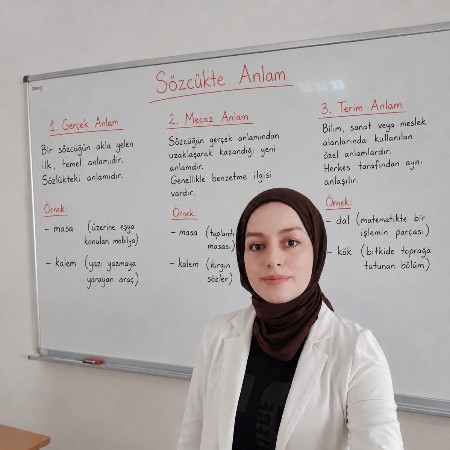 Sözcükte Anlam
1. Gerçek Anlam
Bir sözcüğün akla gelen
ilk, temel anlamıdır.
Sözlükteki anlamıdır.
Örnek:
- masa (üzerine eşya
konulan mobilya)
- kalem (yazı yazmaya
yarayan araç)
2. Mecaz Anlam
Sözcüğün gerçek anlamından
uzaklaşarak kazandığı yeni
anlamdır.
Genellikle benzetme ilgisi
vardır.
Örnek:
- masa (toplantı
masası)
- kalem (kırgın
sözler)
3. Terim Anlam
Bilim, sanat veya meslek
alanlarında kullanılan
özel anlamlardır.
Herkes tarafından aynı
anlaşılır.
Örnek:
- dal (matematikte bir
işlemin parçası)
- kök (bitkide toprağa
tutunan bölüm)